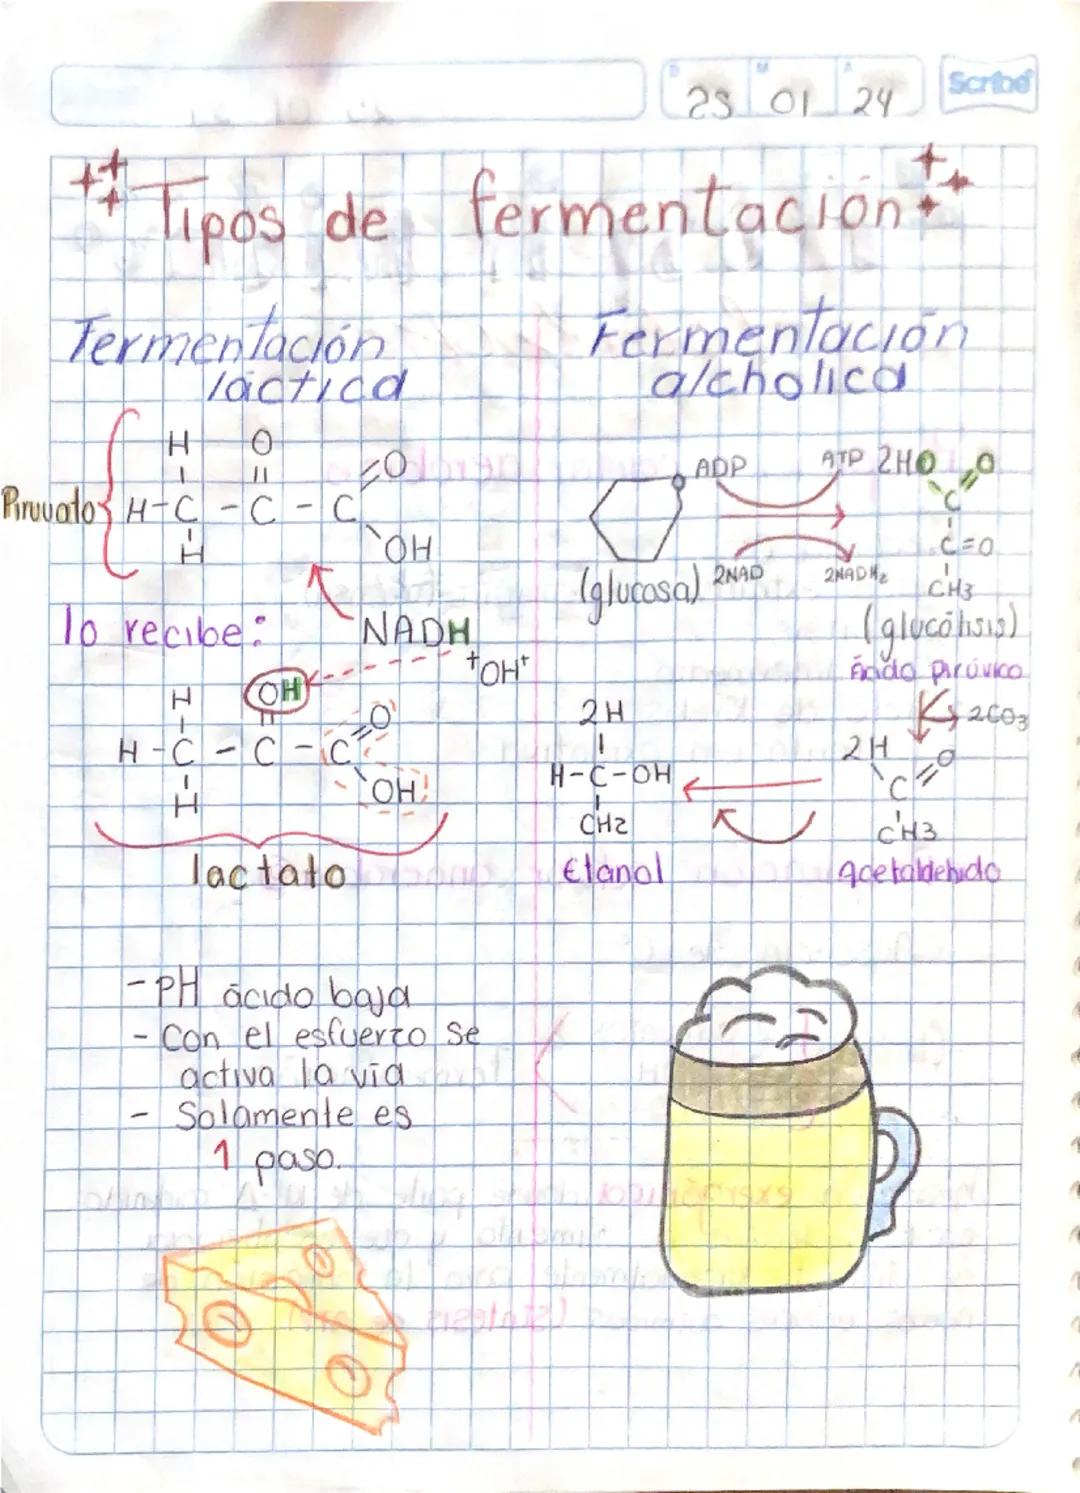 25 01 24
Scribe
Tipos de fermentación
Fermentación
láctica
H O
O
Piruvato H-C-C-C
H OH
lo recibe: NADH
+OH+
H OH
O
H-C-C-C
H OH
lactato
-PH ácido baja
- Con el esfuerzo se
activa la vía
- Solamente es
1 paso.
Fermentación
alcholica
ADP ATP 2HO O
C
C=O
2NAD 2NADH2 CH3
(glucosa)
(glucólisis)
Ácido pirúvico
2CO3
2H 2H O
H-C-OH C
CH2 CH3
Etanol Acetaldehido